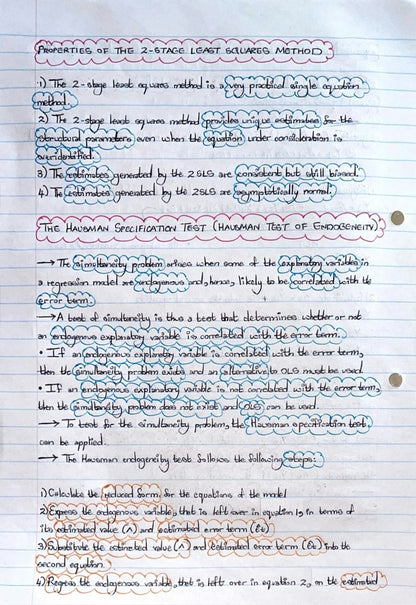 PROPERTIES OF THE 2-STAGE LEAST SQUARES METHOD
1) The 2-stage least squares method is a very practical single equation
method.
2) The 2-stage least squares method provides unique estimates for the
structural parameters even when the equation under consideration is
overidentified.
3) The estimates generated by the 2SLS are consistent but still biased.
4) The estimates generated by the 2SLS are asymptotically normal.
THE HAUSMAN SPECIFICATION TEST (HAUSMAN TEST OF ENDOGENEITY)
→ The simultaneity problem arises when some of the explanatory variables in
a regression model are endogenous and, hence, likely to be correlated with the
error term.
→ A test of simultaneity is thus a test that determines whether or not
an endogenous explanatory variable is correlated with the error term.
• If an endogenous explanatory variable is correlated with the error term,
then the simultaneity problem exists and an alternative to OLS must be used.
• If an endogenous explanatory variable is not correlated with the error term,
then the simultaneity problem does not exist and OLS can be used.
→ To test for the simultaneity problem, the Hausman specification test
can be applied.
→ The Hausman endogeneity test follows the following steps:
1) Calculate the reduced form for the equations of the model
2) Express the endogenous variable, that is left over in equation 1, in terms of
its estimated value (^) and estimated error term (êt)
3) Substitute the estimated value (^) and estimated error term (êt) into the
second equation.
4) Regress the endogenous variable, that is left over in equation 2, on the estimated